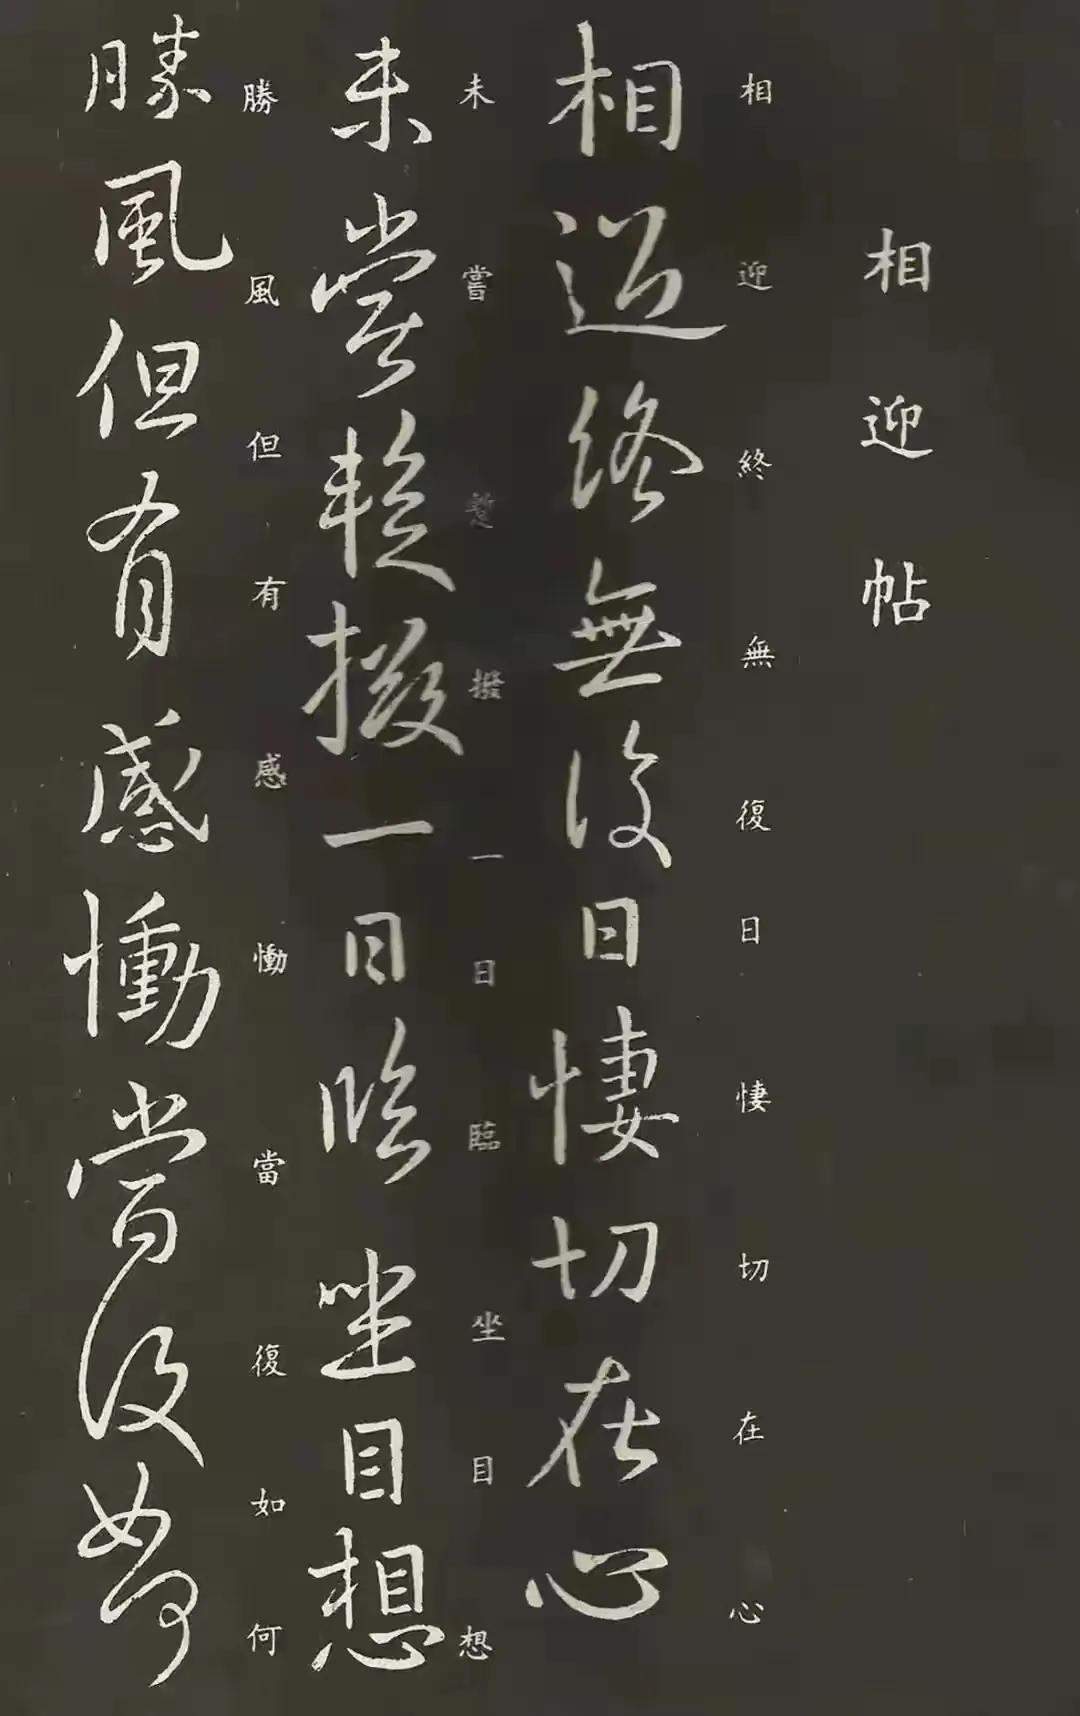 相迎帖
相迎終無復日悽切在心
相迎終無復日悽切在心
未嘗暫撥一日臨坐目想
未嘗暫撥一日臨坐目想
勝風但有感慟當復如何
勝風但有感慟當復如何